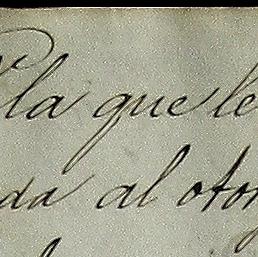 la que le
da al otor